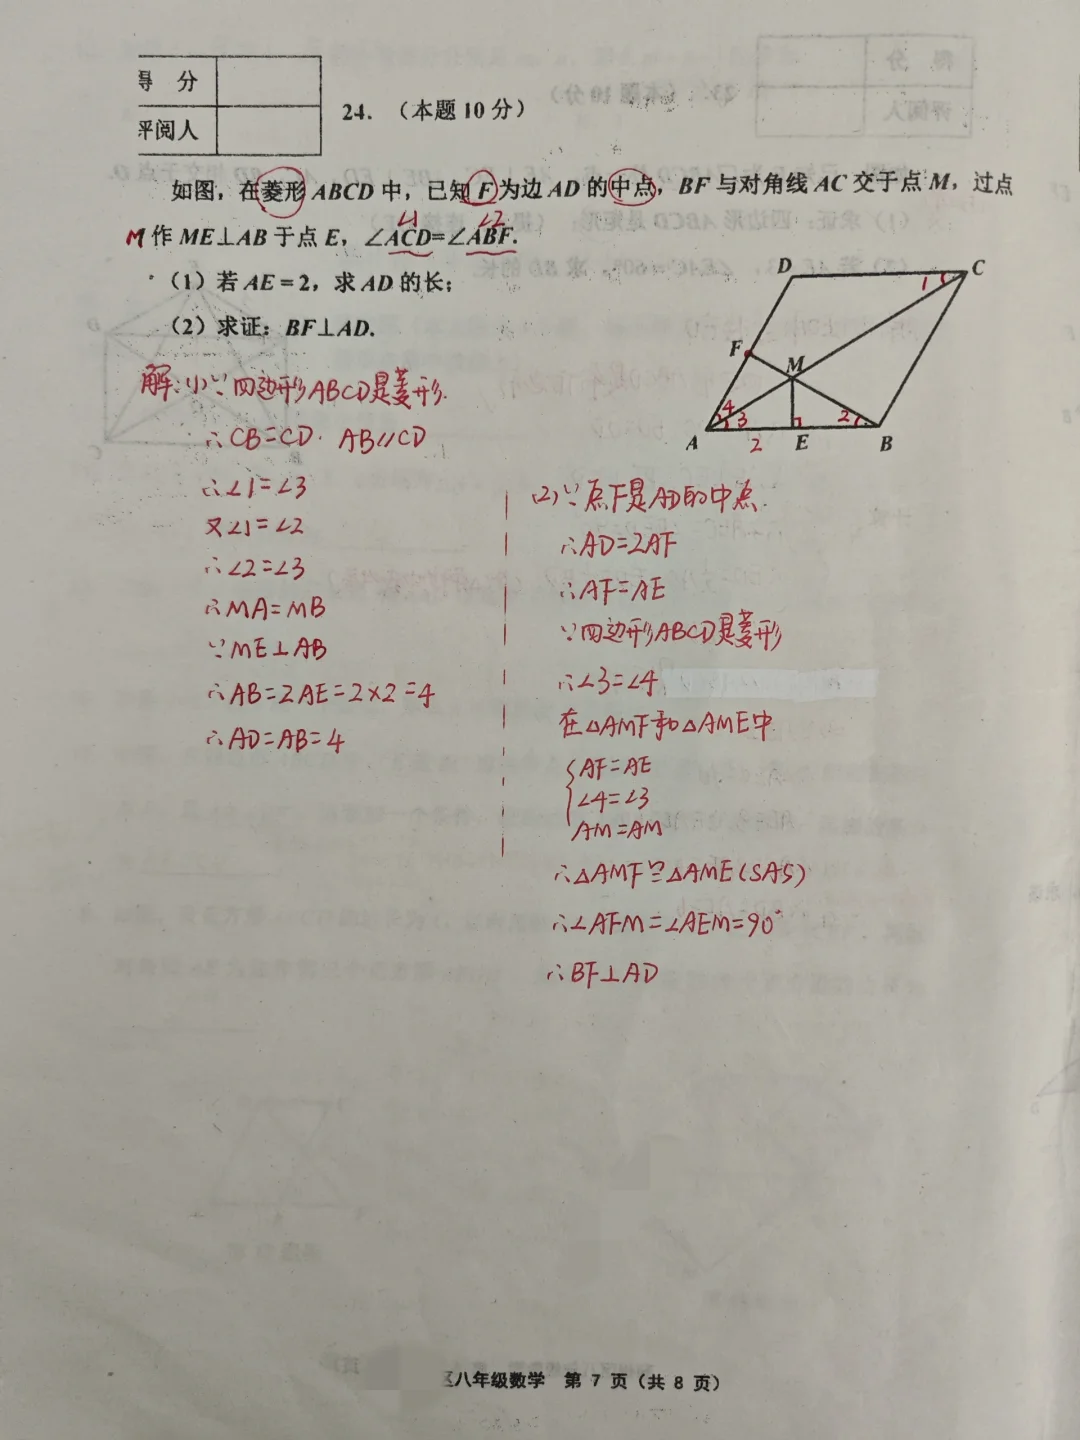 得 分
评阅人
24. （本题10分）
如图，在菱形ABCD中，已知F为边AD的中点，BF与对角线AC交于点M，过点
M作ME⊥AB于点E，∠ACD=∠ABF.
∠1 ∠2
（1）若AE=2，求AD的长；
（2）求证：BF⊥AD.
D C
1
F
M
4 3 2
A 2 E B
解:(1)∵四边形ABCD是菱形.
∴CB=CD. AB//CD
∴∠1=∠3
又∠1=∠2
∴∠2=∠3
∴MA=MB
∵ME⊥AB
∴AB=2AE=2×2=4
∴AD=AB=4
(2)∵点F是AD的中点.
∴AD=2AF
∴AF=AE
∵四边形ABCD是菱形
∴∠3=∠4
在△AMF和△AME中
AF=AE
∠4=∠3
AM=AM
∴△AMF≌△AME(SAS)
∴∠AFM=∠AEM=90°
∴BF⊥AD
区八年级数学 第 7 页（共 8 页）